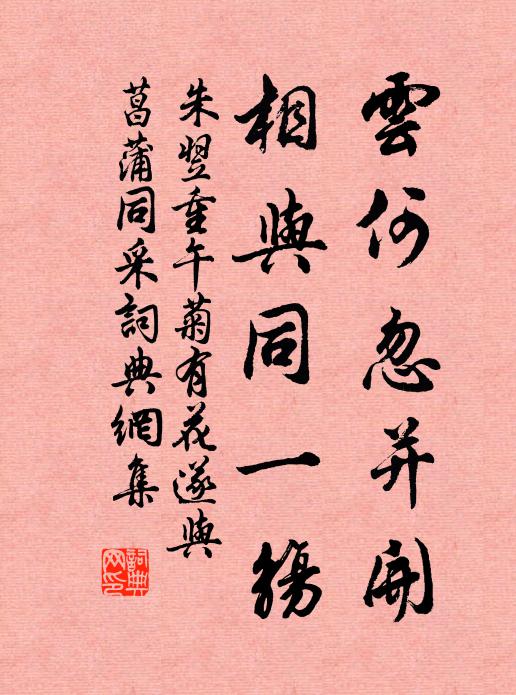 雲何忽并開
相與同一觴
朱翌重午菊有花遂與
菖蒲同采詞典網集
詞典網印